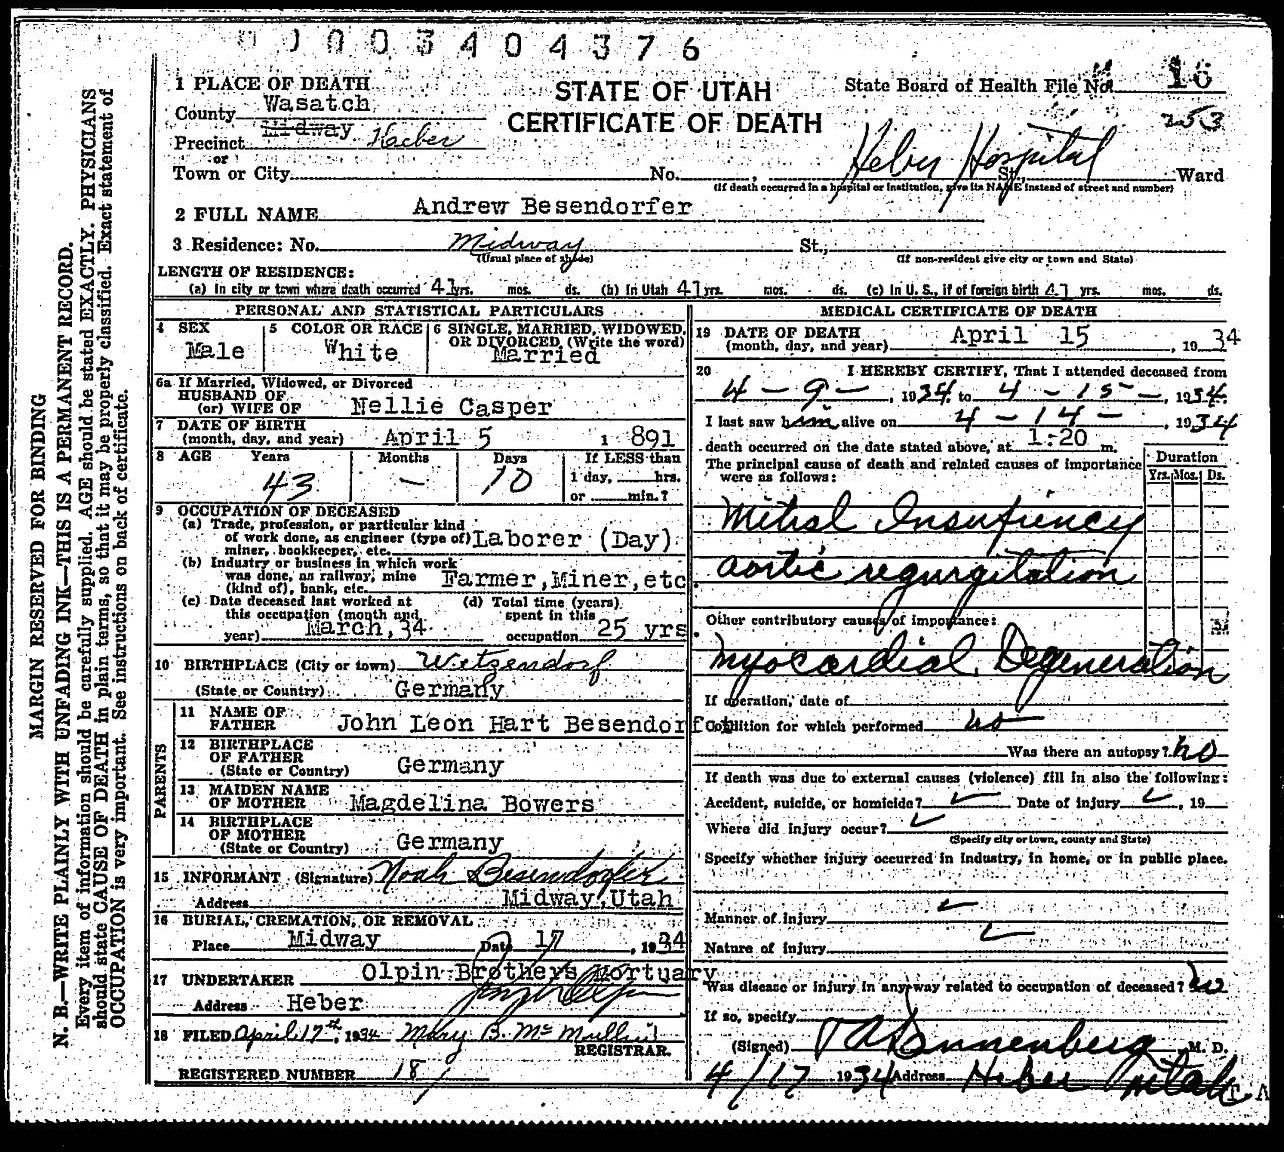 00003404376
1 PLACE OF DEATH
STATE OF UTAH
CERTIFICATE OF DEATH
State Board of Health File No. 16
253
County Wasatch
Precinct Midway Heber
or
Town or City No. , Heber Hospital St., Ward
(If death occurred in a hospital or institution, give its NAME instead of street and number)
2 FULL NAME Andrew Besendorfer
3 Residence: No. Midway St.,
(Usual place of abode) (If non-resident give city or town and State)
LENGTH OF RESIDENCE:
(a) In city or town where death occurred 41 yrs. mos. ds. (b) In Utah 41 yrs. mos. ds. (c) In U. S., if of foreign birth 41 yrs. mos. ds.
PERSONAL AND STATISTICAL PARTICULARS
4 SEX Male
5 COLOR OR RACE White
6 SINGLE, MARRIED, WIDOWED, OR DIVORCED (Write the word) Married
6a If Married, Widowed, or Divorced
HUSBAND OF
(or) WIFE OF Nellie Casper
7 DATE OF BIRTH
(month, day, and year) April 5 1891
8 AGE Years Months Days If LESS than
43 — 10 1 day, hrs.
or min.?
9 OCCUPATION OF DECEASED
(a) Trade, profession, or particular kind
of work done, as engineer (type of) Laborer (Day)
miner, bookkeeper, etc.
(b) Industry or business in which work
was done, as railway, mine Farmer, Miner, etc
(kind of), bank, etc.
(c) Date deceased last worked at
this occupation (month and
year) March, 34
(d) Total time (years)
spent in this
occupation 25 yrs.
10 BIRTHPLACE (City or town) Wetzendorf
(State or Country) Germany
PARENTS
11 NAME OF
FATHER John Leon Hart Besendorfer
12 BIRTHPLACE
OF FATHER
(State or Country) Germany
13 MAIDEN NAME
OF MOTHER Magdelina Bowers
14 BIRTHPLACE
OF MOTHER
(State or Country) Germany
15 INFORMANT (Signature) Noah Besendorfer
Address Midway, Utah
16 BURIAL, CREMATION, OR REMOVAL
Place Midway Date 17, 1934
17 UNDERTAKER Olpin Brothers Mortuary
Address Heber
18 FILED April 17th, 1934 Mary B. McMullin
REGISTRAR.
REGISTERED NUMBER 18
MEDICAL CERTIFICATE OF DEATH
19 DATE OF DEATH
(month, day, and year) April 15, 1934
20 I HEREBY CERTIFY, That I attended deceased from
4 - 9 - , 1934 to 4 - 15 - , 1934.
I last saw him alive on 4 - 14 - , 1934
death occurred on the date stated above, at 1:20 m.
The principal cause of death and related causes of importance
were as follows:
Duration
Yrs. Mos. Ds.
Mitral Insufiency
aortic regurgitation
Other contributory causes of importance:
Myocardial Degeneration
If operation, date of
Condition for which performed no
Was there an autopsy? no
If death was due to external causes (violence) fill in also the following:
Accident, suicide, or homicide? ✓ Date of injury ✓, 19
Where did injury occur? ✓
(Specify city or town, county and State)
Specify whether injury occurred in industry, in home, or in public place.
✓
Manner of injury
Nature of injury ✓
Was disease or injury in any way related to occupation of deceased? No
If so, specify
(Signed) Dannenberg M. D.
4/17 1934 Address Heber Utah
MARGIN RESERVED FOR BINDING
N. B.—WRITE PLAINLY WITH UNFADING INK—THIS IS A PERMANENT RECORD.
Every item of information should be carefully supplied. AGE should be stated EXACTLY. PHYSICIANS
should state CAUSE OF DEATH in plain terms, so that it may be properly classified. Exact statement of
OCCUPATION is very important. See instructions on back of certificate.